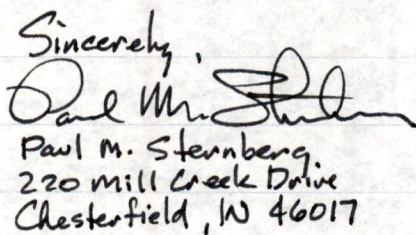 Sincerely,
Paul M. Sternberg
Paul M. Sternberg
220 Mill Creek Drive
Chesterfield, IN 46017